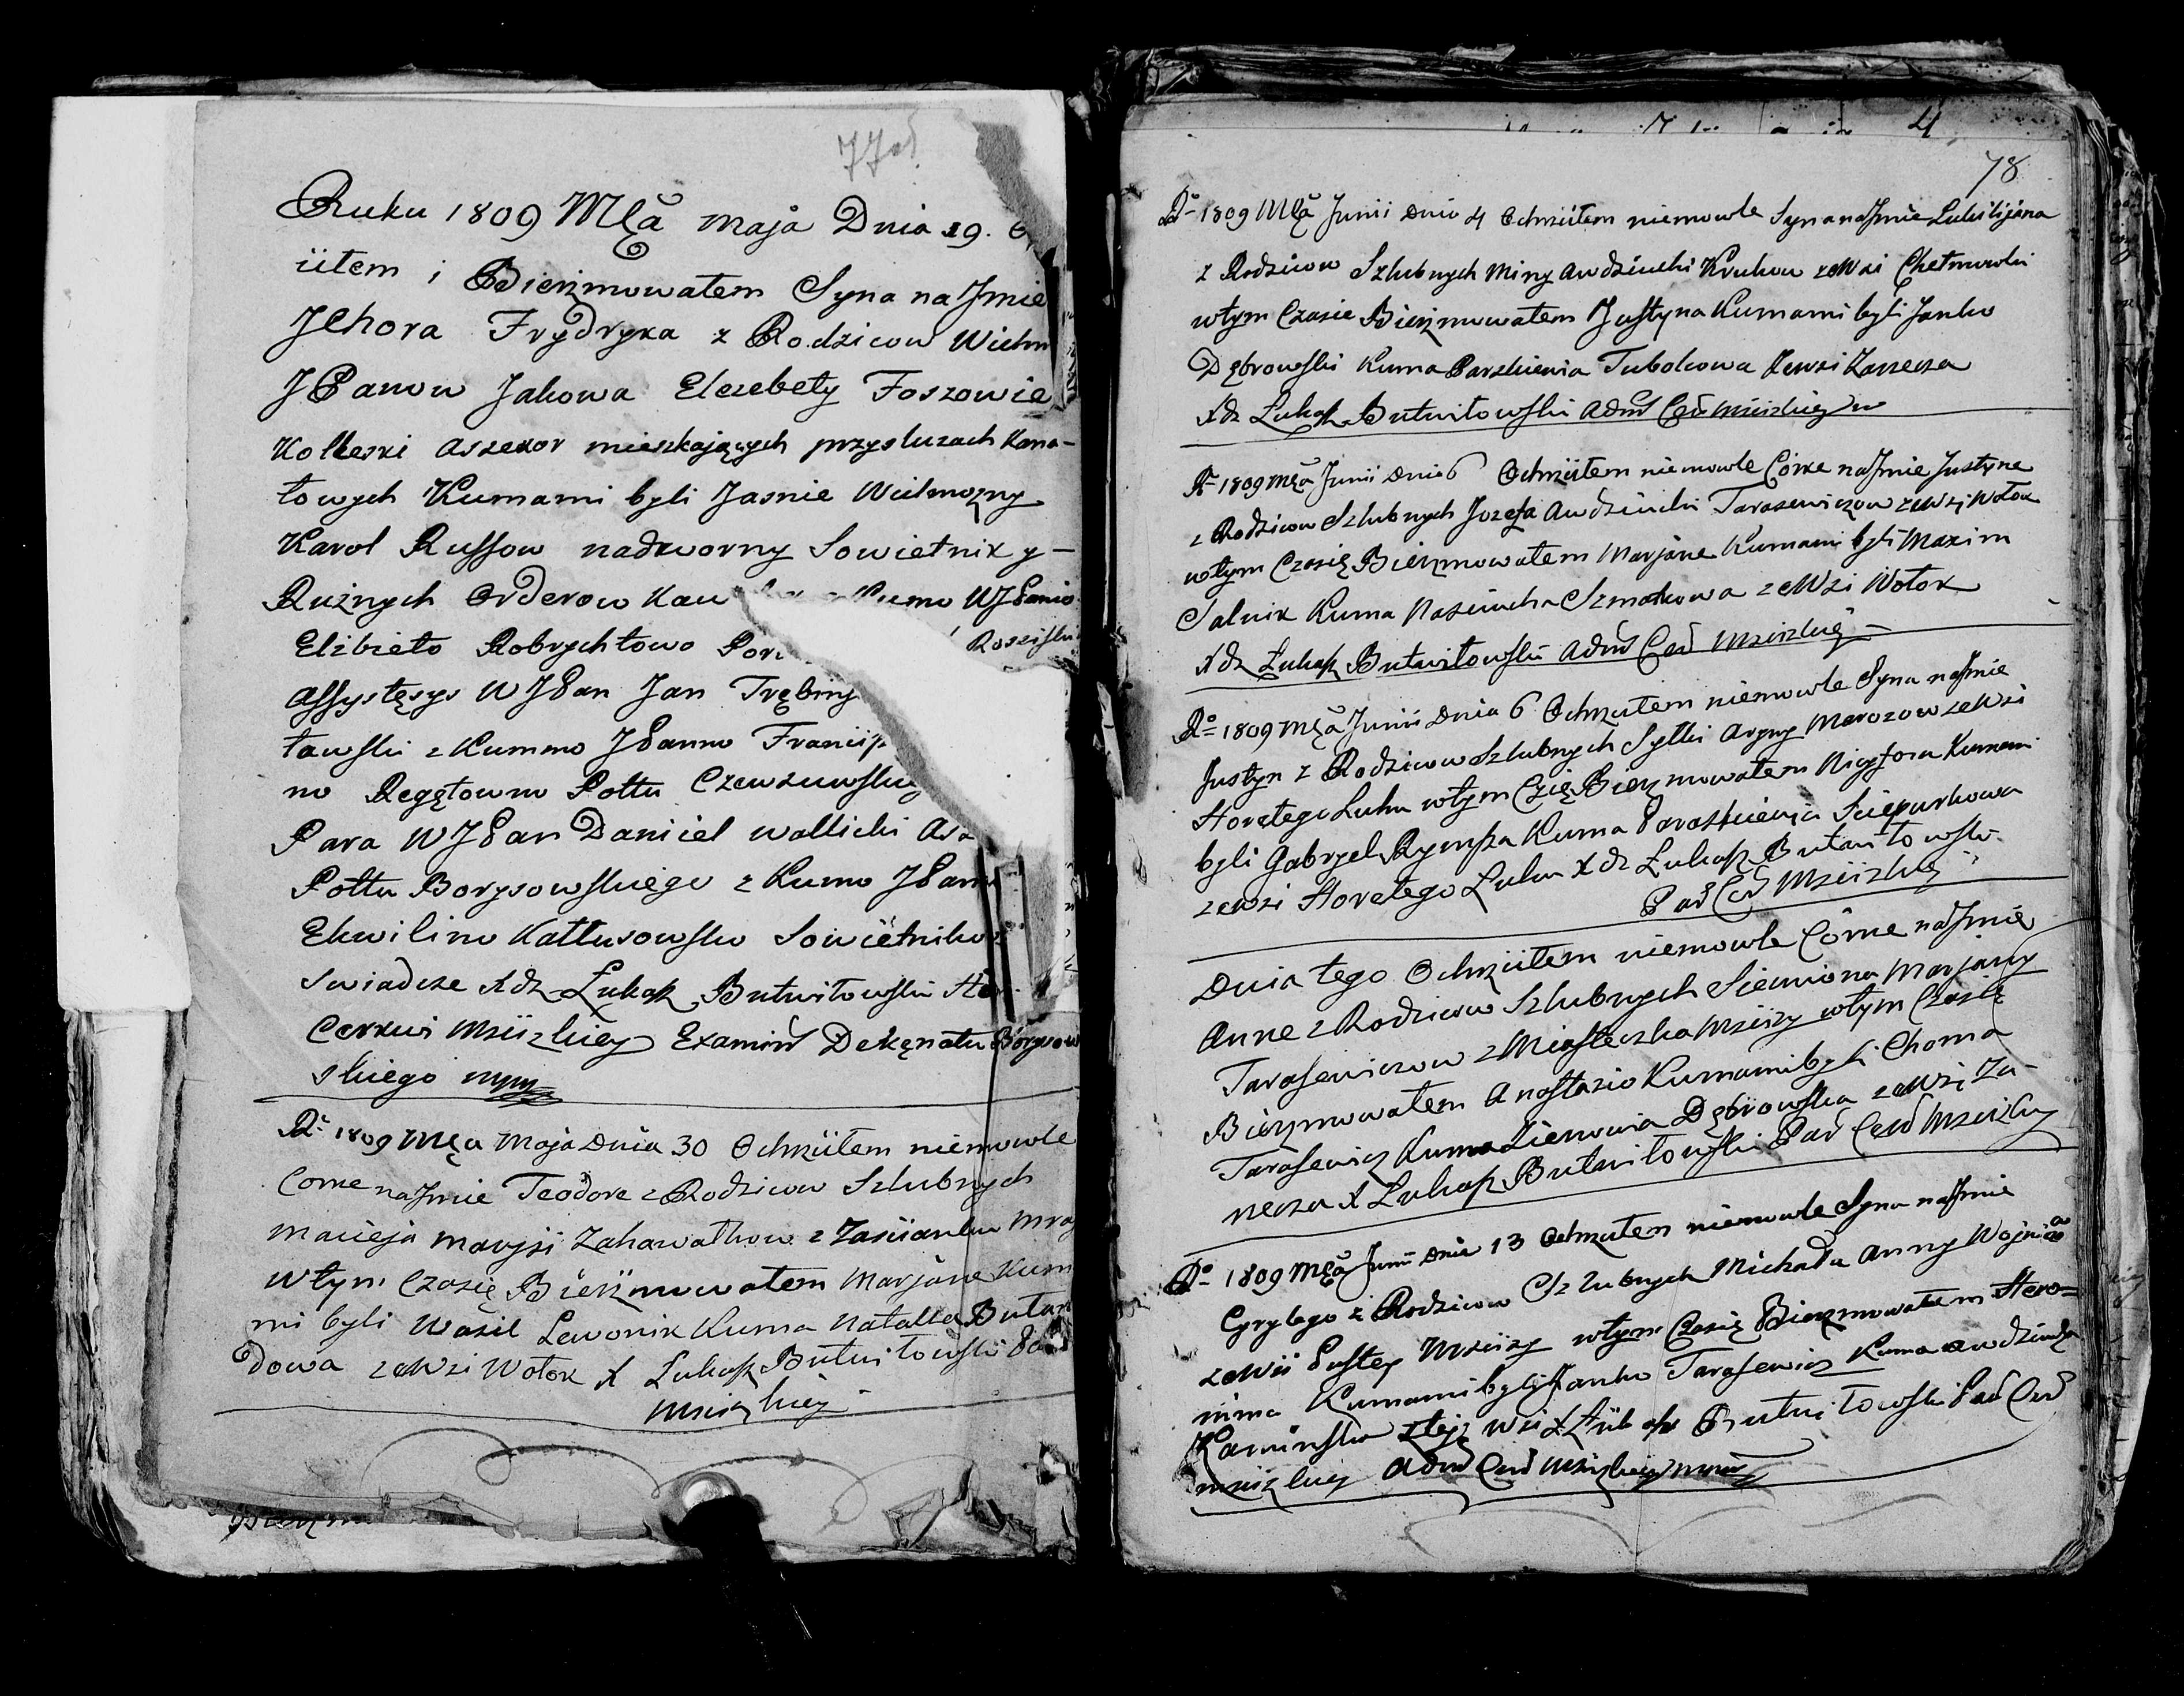 77 od
Ruku 1809 Mca maja Dnia 29.
iitem i Bierzmowałem Syna na Jmie
Jchora Frydryka z Rodzicow Wielm
JPanow Jakowa Elezebety Foszowie
Kolleski Assexor mieszkaiących przysluzach Kana-
łowych Kumami byli Jasnie Wielmozny
Karol Russow nadworny Sowietnik y-
Rużnych Orderow Kaw Kumo WJPanio
Elżbieto Robrychtowo Rossiski
Assystęsys WJPan Jan Trębiny
tawski z Kummo JPanno Franci
no Regętowno Pottu Czewzewski
Para WJPan Daniel wallicki
Pottu Borysowskiego z Kumo JPan
Ekwilino Kattusowsko Sowietniko
Swiadcze Xdz Łukasz Butwiłowski
Cerkwi Mziizkiey Examin Dekęnatu Borysow
skiego mpp
Ro 1809 Mca Maja Dnia 30 Ochrziitem niemowle
Corne na Jmie Teodore z Rodzicow Szlubnych
Macieja maryji Zahawałkow z Zasiianku
wtym Czasię Bierzmowałem Marjane Kum
mi byli Wasil Lewonik Kuma Natalla
dowa zeWsi Wołok X Łukasz Butwiłowski
Mziizkiey
78
Ro 1809 Mca Junii Dnia 4 Ochrziitem niemowle Syna na Jmie Lukilijana
z Rodzicow Szlubnych Miny Awdziuchi Krukow zeWsi Chełmowki
wtym Czasie Bierzmowałem Justyna Kumami byli Janko
Dębrowski Kuma Parskiewia Tubolcowa zewsi Zarzecza
Xdz Łukasz Butwiłowski Adm Cer Mziizkiey
Ro 1809 Mca Junii Dnia 6 Ochrziitem niemowle Corne na Jmie Justyne
z Rodzicow Szlubnych Jozefa Awdziuchi Tarasewiczow zeWsi Wołok
wtym Czasię Bierzmowałem Marjane Kumami byli Maxim
Salnik Kuma Naściucha Szmatkowa zeWsi Wołok
Xdz Łukasz Butwiłowski Adm Cer Mziizkiey
Ro 1809 Mca Junii Dnia 6 Ochrzutem niemowle Syna na Jmie
Justyn z Rodzicow Szlubnych Sylki Aryny Marozow zeWsi
Horełego Luhu wtym Czię Bierzmowałem Nicyfora Kumami
byli Gabryel Rympza Kuma Paraskiewia Sciepurkowa
zewsi Horełego Luhu Xdz Łukasz Butwiłowski
Par Cer Mziizkiey
Dnia tego Ochrziitem niemowle Corne na Jmie
Anne z Rodzicow Szlubnych Siemiona Marjany
Tarasewiczow z Miasteczka Mziży wtym Czasię
Bierzmowałem Anastazio Kumami byli Choma
Tarasewicz Kuma Zienowia Dębrowska zeWsi Za-
recza X Łukasz Butwiłowski Par Cer Mziizkiey
Ro 1809 Mca Junii Dnia 13 Ochrzutem niemowle Syna na Jmie
Cyrylego z Rodzicow Szlubnych Michała Anny
zeWsi Pustey Mziży wtym Czasię Bierzmowałem Hero=
nima Kumami byli Janko Tarasewicz Kuma Awdziucha
Kaminska z tej wsi X Łukasz Butwiłowski Par Cer
Mziizkiey Adm Cer Mziizkiey